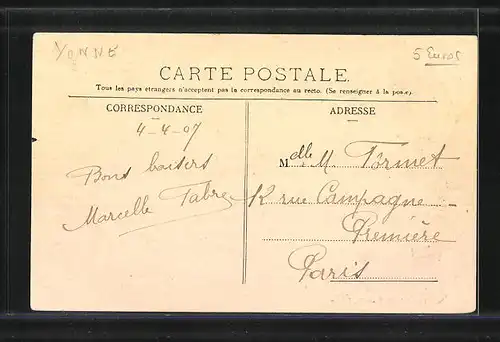 YONNE
5 Euros
CARTE POSTALE
Tous les pays étrangers n'acceptent pas la correspondance au recto. (Se renseigner à la poste)
CORRESPONDANCE
ADRESSE
4-4-07
Bons baisers
Marcelle Fabre
Mdlle M. Formet
rue Campagne
Première
Paris